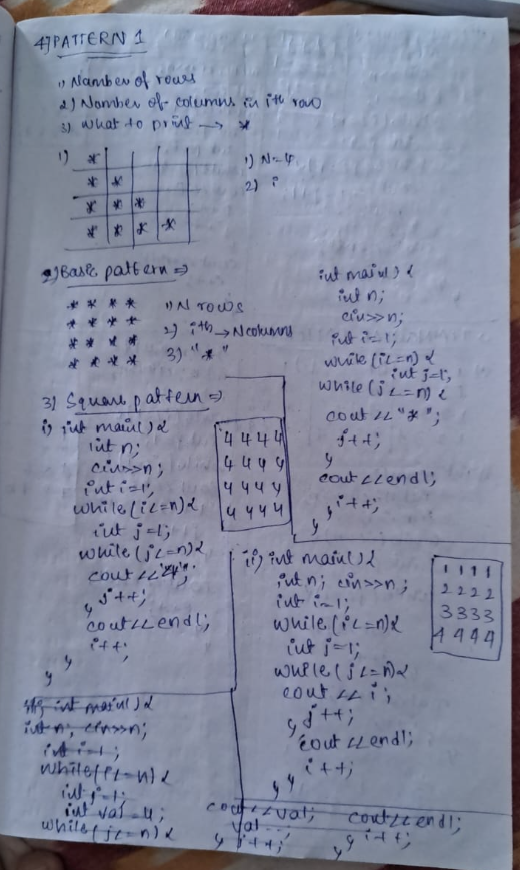 4) PATTERN 1
1) Number of rows
2) Number of columns in ith row
3) What to print → *
1) *
* *
* * *
* * * *
1) N=4
2) i
2) Basic pattern ⇒
* * * *
* * * *
* * * *
* * * *
1) N rows
2) ith → N columns
3) "*"
int main() {
int n;
cin>>n;
int i=1;
while(i<=n) {
int j=1;
while(j<=n) {
cout << "*";
j++;
}
cout<<endl;
i++;
}
}
3) Square pattern ⇒
i) int main() {
int n;
cin>>n;
int i=1;
while(i<=n) {
int j=1;
while(j<=n) {
cout << "4";
j++;
}
cout<<endl;
i++;
}
}
4 4 4 4
4 4 4 4
4 4 4 4
4 4 4 4
ii) int main() {
int n; cin>>n;
int i=1;
while(i<=n) {
int j=1;
while(j<=n) {
cout << i;
j++;
}
cout <<endl;
i++;
} }
1 1 1 1
2 2 2 2
3 3 3 3
4 4 4 4
int main() {
int n; cin>>n;
int i=1;
while(i<=n) {
int j=1;
int val=4;
while(j<=n) {
cout<<val;
val--;
j++;
}
cout<<endl;
i++;
}
}